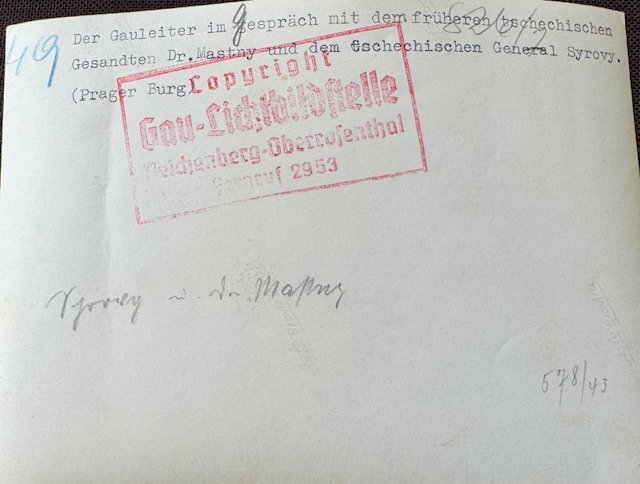 49
Der Gauleiter im gespräch mit dem früheren tschechischen
Gesandten Dr.Mastny und dem Gschechischen General Syrovy.
(Prager Burg
Copyright
Gau-Lichtbildstelle
Reichenberg-Oberrosenthal
Fernruf 2953
Syrovy u. Dr. Mastny
578/43